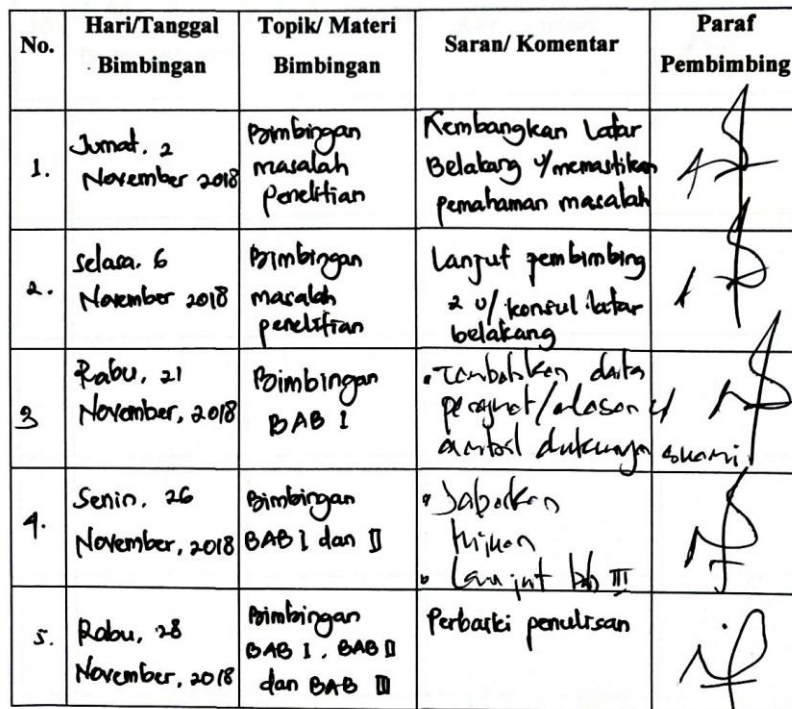 No.
Hari/Tanggal
Bimbingan
Topik/ Materi
Bimbingan
Saran/ Komentar
Paraf
Pembimbing
1.
Jumat, 2
November 2018
Bimbingan
masalah
penelitian
Kembangkan Latar
Belakang u/memastikan
pemahaman masalah
2.
Selasa, 6
November 2018
Bimbingan
masalah
penelitian
Lanjut pembimbing
2 u/ konsul latar
belakang
3
Rabu, 21
November, 2018
Bimbingan
BAB I
• Tambahkan data
penguat/alasan u/
ambil dukungan suami
4.
Senin, 26
November, 2018
Bimbingan
BAB I dan II
• Jabarkan
tujuan
• Lanjut bab III
5.
Rabu, 28
November, 2018
Bimbingan
BAB I, BAB II
dan BAB III
Perbaiki penulisan